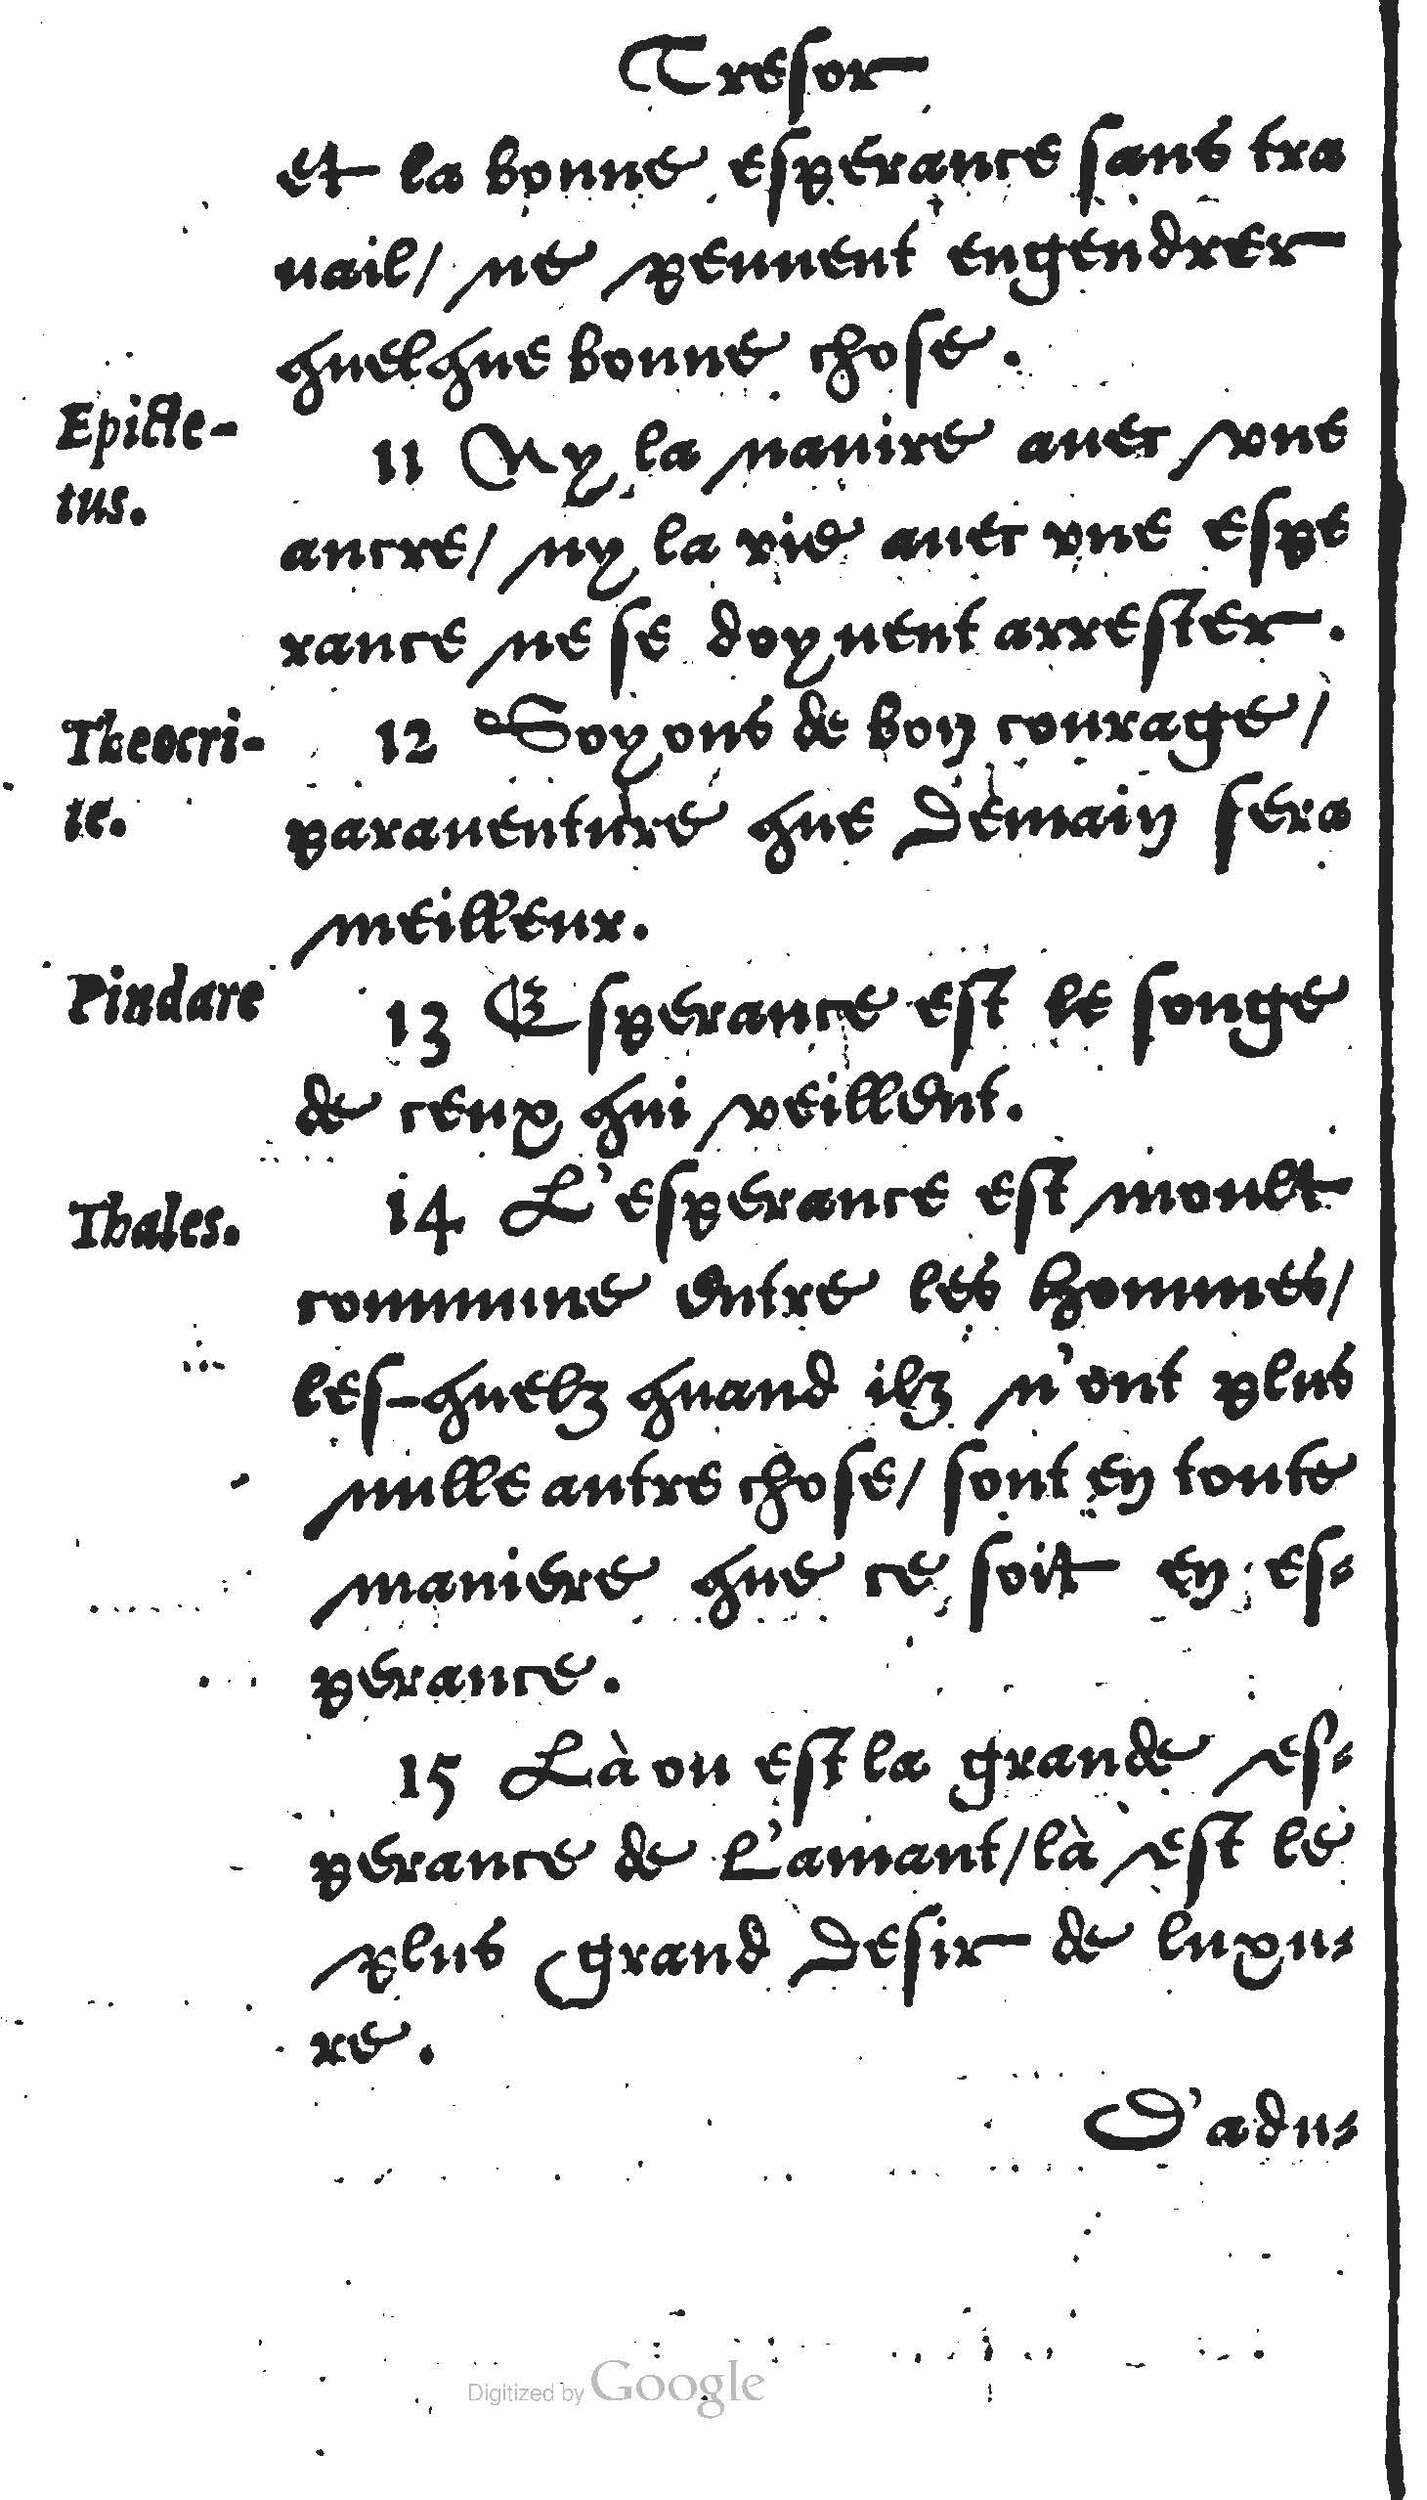 Tresor
et la bonne esperance sans tra
uail/ ne peuuent engendrer
quelque bonne chose.
Epicte-
tus.
11 Ny la nauire auec vne
ancre/ ny la vie auec vne espe
rance ne se doyuent arrester.
Theocri-
te.
12 Soyons de bon courage/
parauenture que demain sera
meilleur.
Pindare
13 Esperance est le songe
de ceux qui veillent.
Thales.
14 L'esperance est moult
commune entre les hommes/
les-quelz quand ilz n'ont plus
nulle autre chose/ sont en toute
maniere que ce soit en es-
perance.
15 Là ou est la grande es-
perance de L'amant/là est le
plus grand desir de luxu-
re.
D'adu-
Digitized by Google